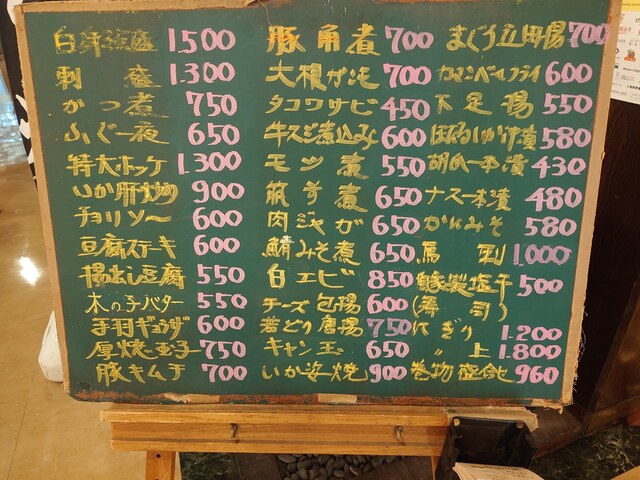 白身 盛 1.500
刺 盛 1.300
がつ煮 750
ふぐ一夜 650
特大ホッケ 1.300
いか肝炒め 900
チョリソー 600
豆腐ステキ 600
揚出し豆腐 550
木の子バター 550
手羽ギョウザ 600
厚焼き玉子 750
豚キムチ 700
豚角煮 700
大根ガンモ 700
タコワサビ 450
牛スジ煮込み 600
モツ煮 550
筑ぜ煮 650
肉ジャガ 650
鯖みそ煮 650
白エビ 850
チーズ包揚 600
若どり唐揚 750
キャン玉 650
いか姿焼 900
まぐろ立田揚 700
カマンベールフライ 600
下足揚 550
しょうゆ漬 580
胡瓜一本漬 430
ナス一本漬 480
かにみそ 580
馬刺 1.000
自家製塩辛 500
(寿司)
にぎり 1.200
〃 上 1.800
巻物盛合せ 960